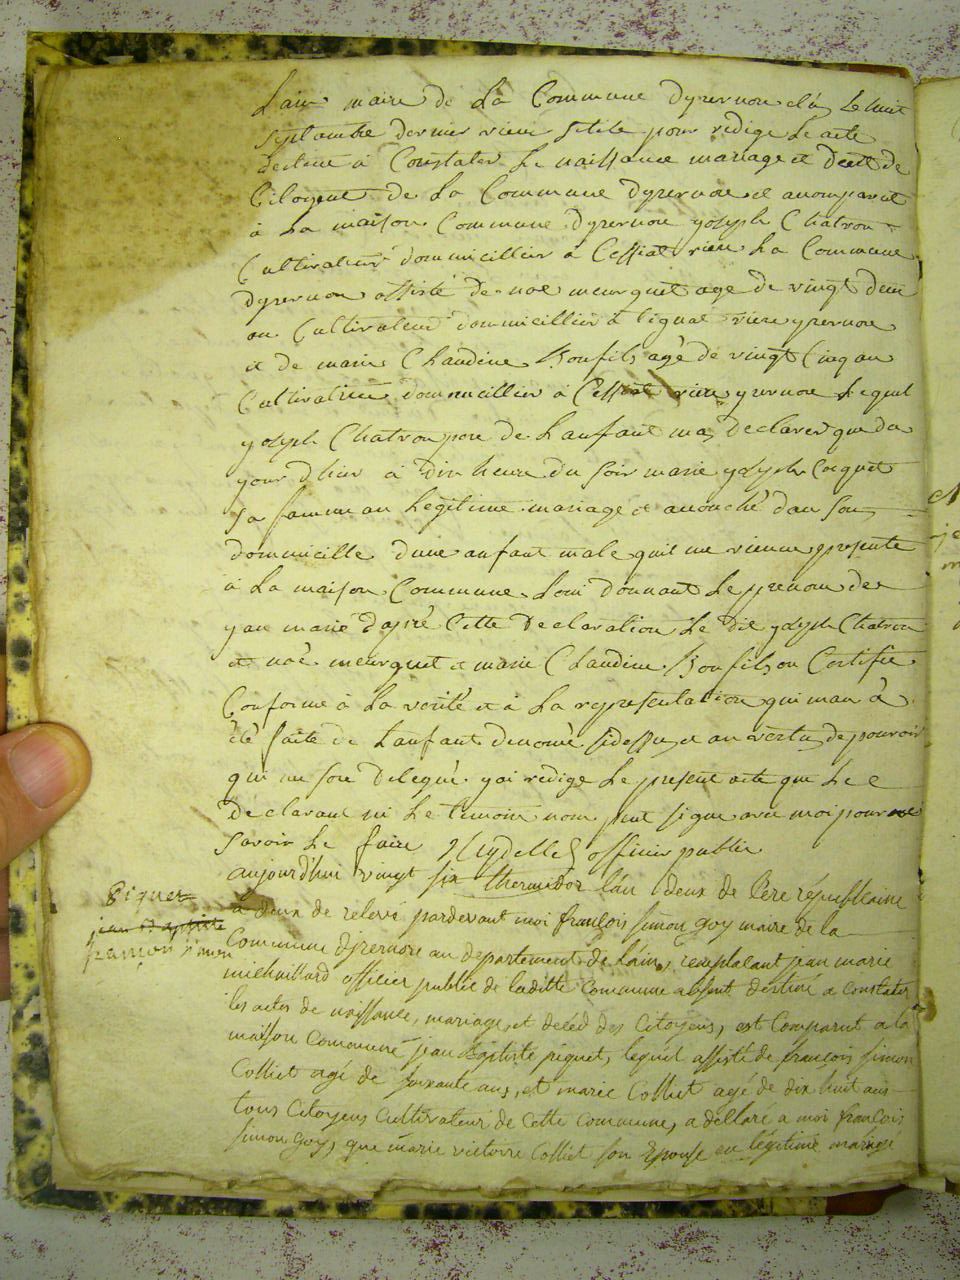 Lain maire de La Commune dyzernore elû Le huit
Septambre dernier vieux stile pour redige Le acte
destiné à Constater Le naissance mariage et decet de
Citoyent de La Commune dyzernore et a comparut
à La maison Commune dyzernore yoseph Chatron
Cultivateur dommicillier à Cessiat riere La Commune
dyzernore assisté de noé meurquet age de vingt deux
an Cultivateur dommicillier à Tignat riere yzernore
et de marie Claudine Bonfils agé de vingt Cinq an
Cultivatrice dommicillier à Cessiat riere yzernore Lequel
yoseph Chatron pere de Lanfant mas declarer que du
your dhier à dix heure du soir marie yoseph Coquet
sa famme an Legitime mariage et acouché dan son
dommicille dune anfant male quil me vienne presente
à La maison Commune Loui donnant Le prenom de
yan marie dapré Cette declaration Le dit yoseph Chatron
et noé meurquet et marie Claudine Bonfils on Certifie
Conforme à La verité et à La representation qui man à
été faite de Lanfant denomé sidessu et an vertu de pouvoir
qui me son delegué yai redige Le present acte que Le
declarant ni Le temoin nom peut signe avec moi pour ne
savoir Le faire officier public
aujourd'hui vingt six thermidor l'an deux de l'ère républicaine
à deux de relevé pardevant moi françois simon goy maire de la
Commune djzernore au departement de Lain, remplaçant jean marie
michaillard officier public de laditte commune absent destiné a constater
les actes de naissance, mariage, et déced des Citoyens, est Comparut a la
maison Commune jean Baptiste piquet, lequel assisté de françois simon
Colliet agé de soixante ans, et marie Colliet agé de dix huit ans
tous Citoyens Cultivateur de cette commune, a déllaré a moi françois
simon goy, que marie victoire Colliet son Epouse en légitime mariage
piquet
jean Baptiste
simon